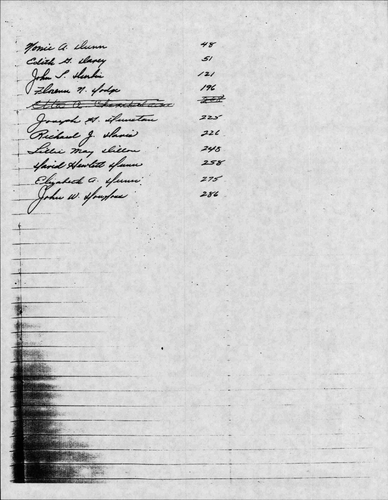 Nonie A. Dunn 48
Edith G. Davey 51
John S. Durkin 121
Florence N. Dodge 196
Joseph H. Dunstan 225
Richard J. Davis 226
Lillie May Dillon 248
David Hewlett Dunn 258
Elizabeth A. Dunn 275
John W. 286